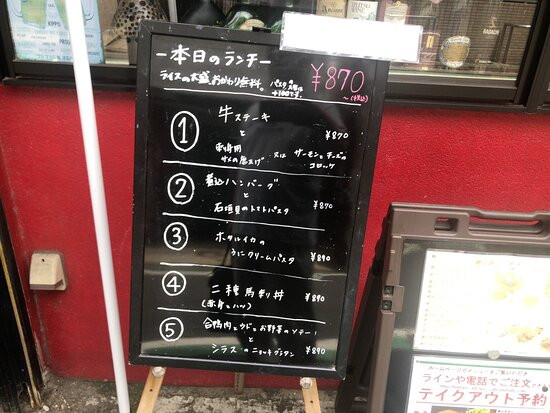 ー本日のランチー
ライスの大盛、おかわり無料。
パスタの大盛は
+100円です。
¥870
〜(税込)
① 牛ステーキ
と ¥870
刺身用
サメの唐揚げ 又は サーモンとチーズの
コロッケ
② 煮込ハンバーグ
と
石垣貝のトマトパスタ ¥870
③ ホタルイカの
うにクリームパスタ ¥890
④ 二種馬刺丼 ¥890
(赤身とハツ)
⑤ 合鴨肉とウドとお野菜のソテー
と
シラスのニョッキグラタン ¥890
ホームページでメニューをご覧いただき
ラインや電話でご注文
テイクアウト予約